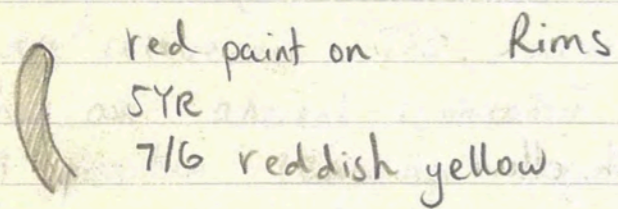 red paint on Rims
5YR
7/6 reddish yellow